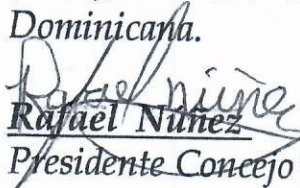 Dominicana.
Rafael Núñez
Rafael Núñez
Presidente Concejo